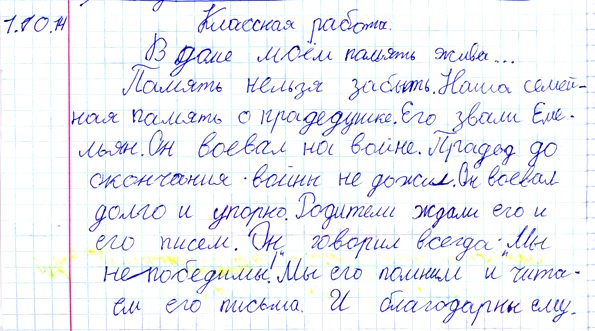 1.10.14
Классная работа.
В доме моём память жива...
Память нельзя забыть. Наша семей-
ная память о прадедушке. Его звали Еме-
льян. Он воевал на войне. Прадед до
окончания войны не дожил. Он воевал
долго и упорно. Родители ждали его и
его писем. Он говорил всегда: "Мы
непобедимы!" Мы его помним и чита-
ем его письма. И благодарны ему.